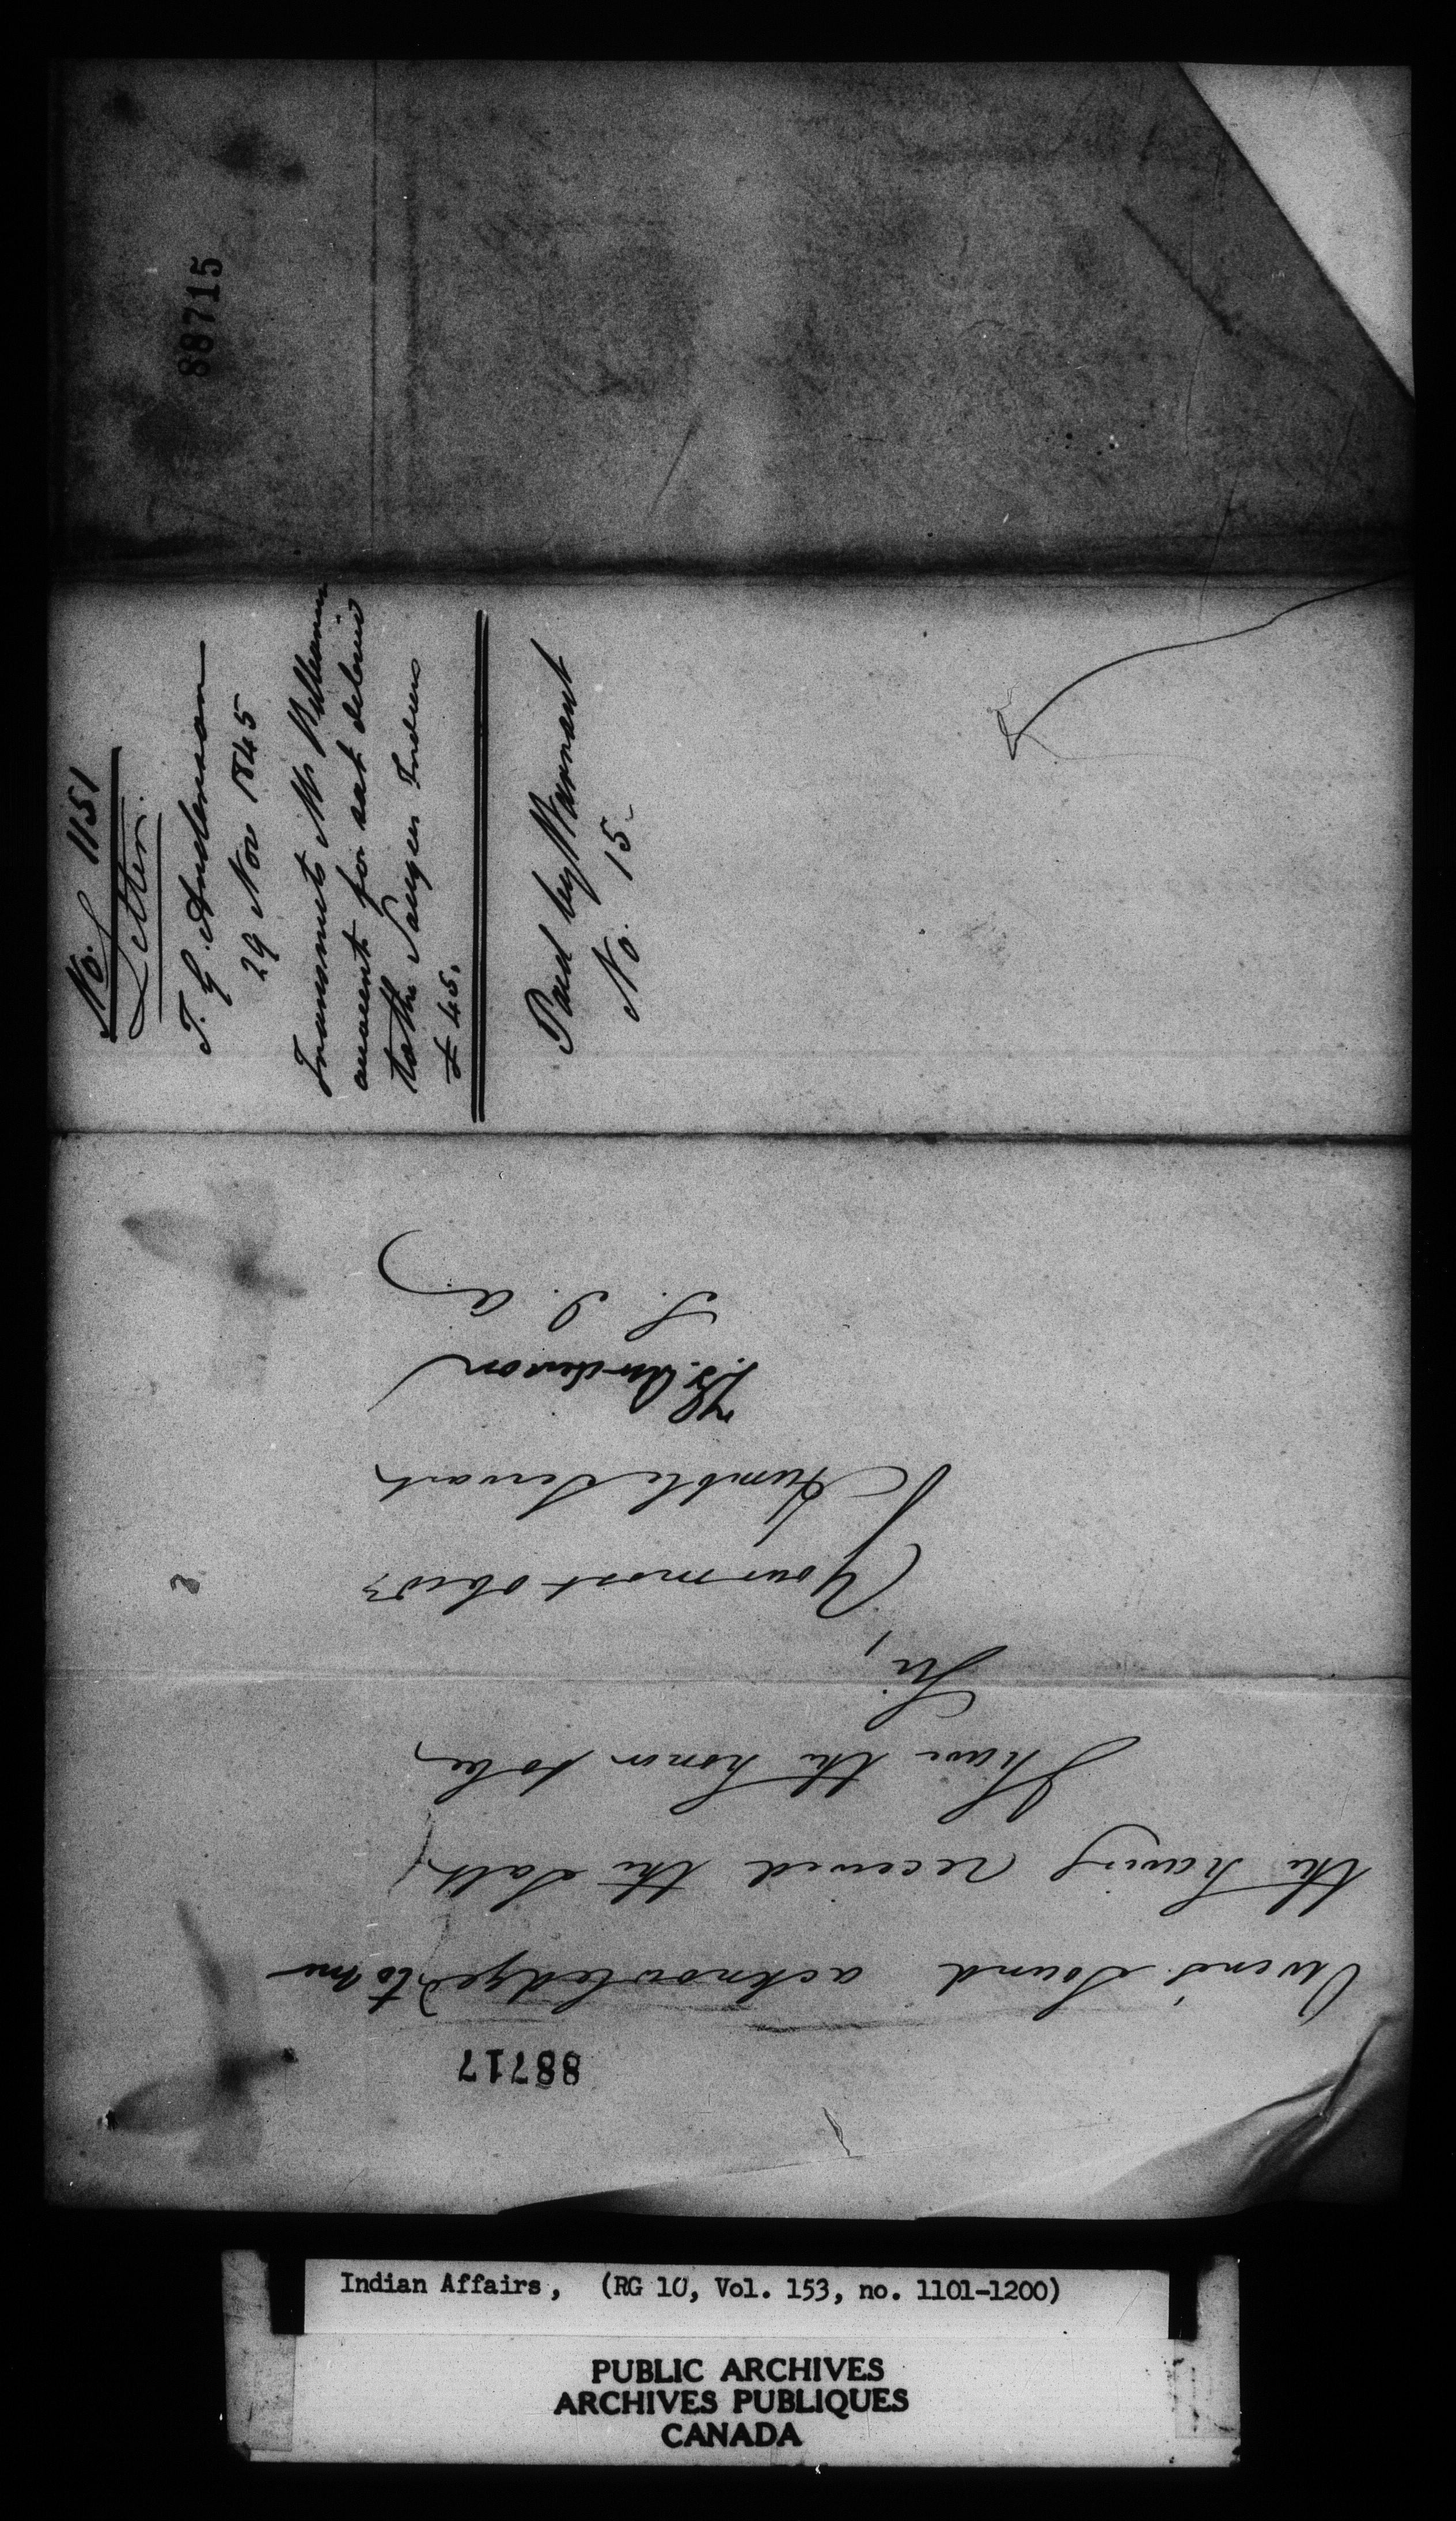 88715
No. 1151
Letter.
T. G. Anderson
29 Nov 1845
Transmits Mr
account for salt delivered
to the Saugeen Indians
£45.
Paid by Warrant
No. 15
88717
Owen's Sound acknowledged to me
the having received the Salt
I have the honor to be,
Sir,
Your most obedt
Humble Servant
T.G. Anderson
S. I. A.
Indian Affairs, (RG 10, Vol. 153, no. 1101-1200)
PUBLIC ARCHIVES
ARCHIVES PUBLIQUES
CANADA